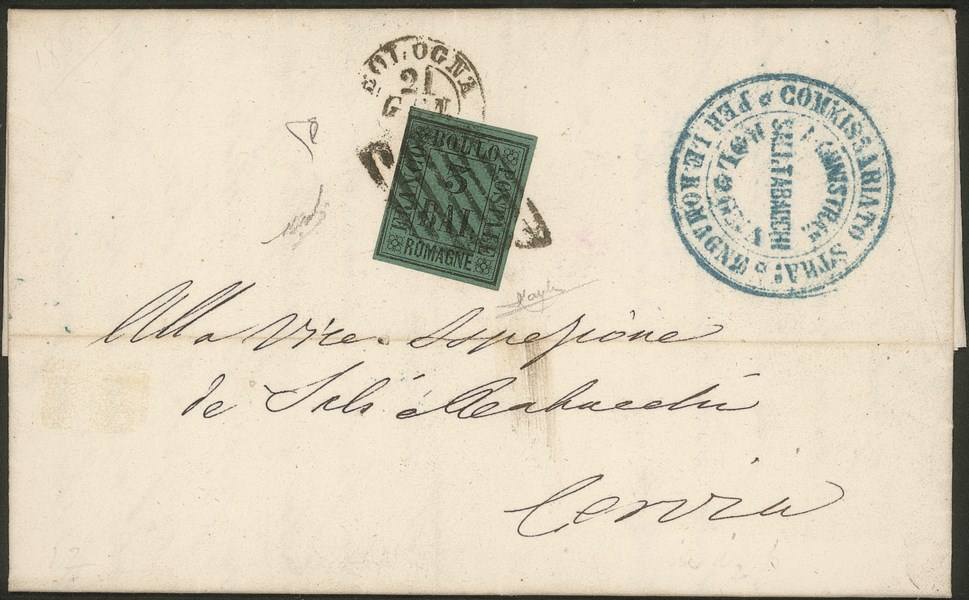 BOLOGNA
21
GEN
FRANCO BOLLO POSTALE
3
BAI
ROMAGNE
COMMISSARIATO STRA: PER LE ROMAGNE
SALI.TABACCHI
Alla Vice Ispezione
de Sali e Tabacchi
Cervia